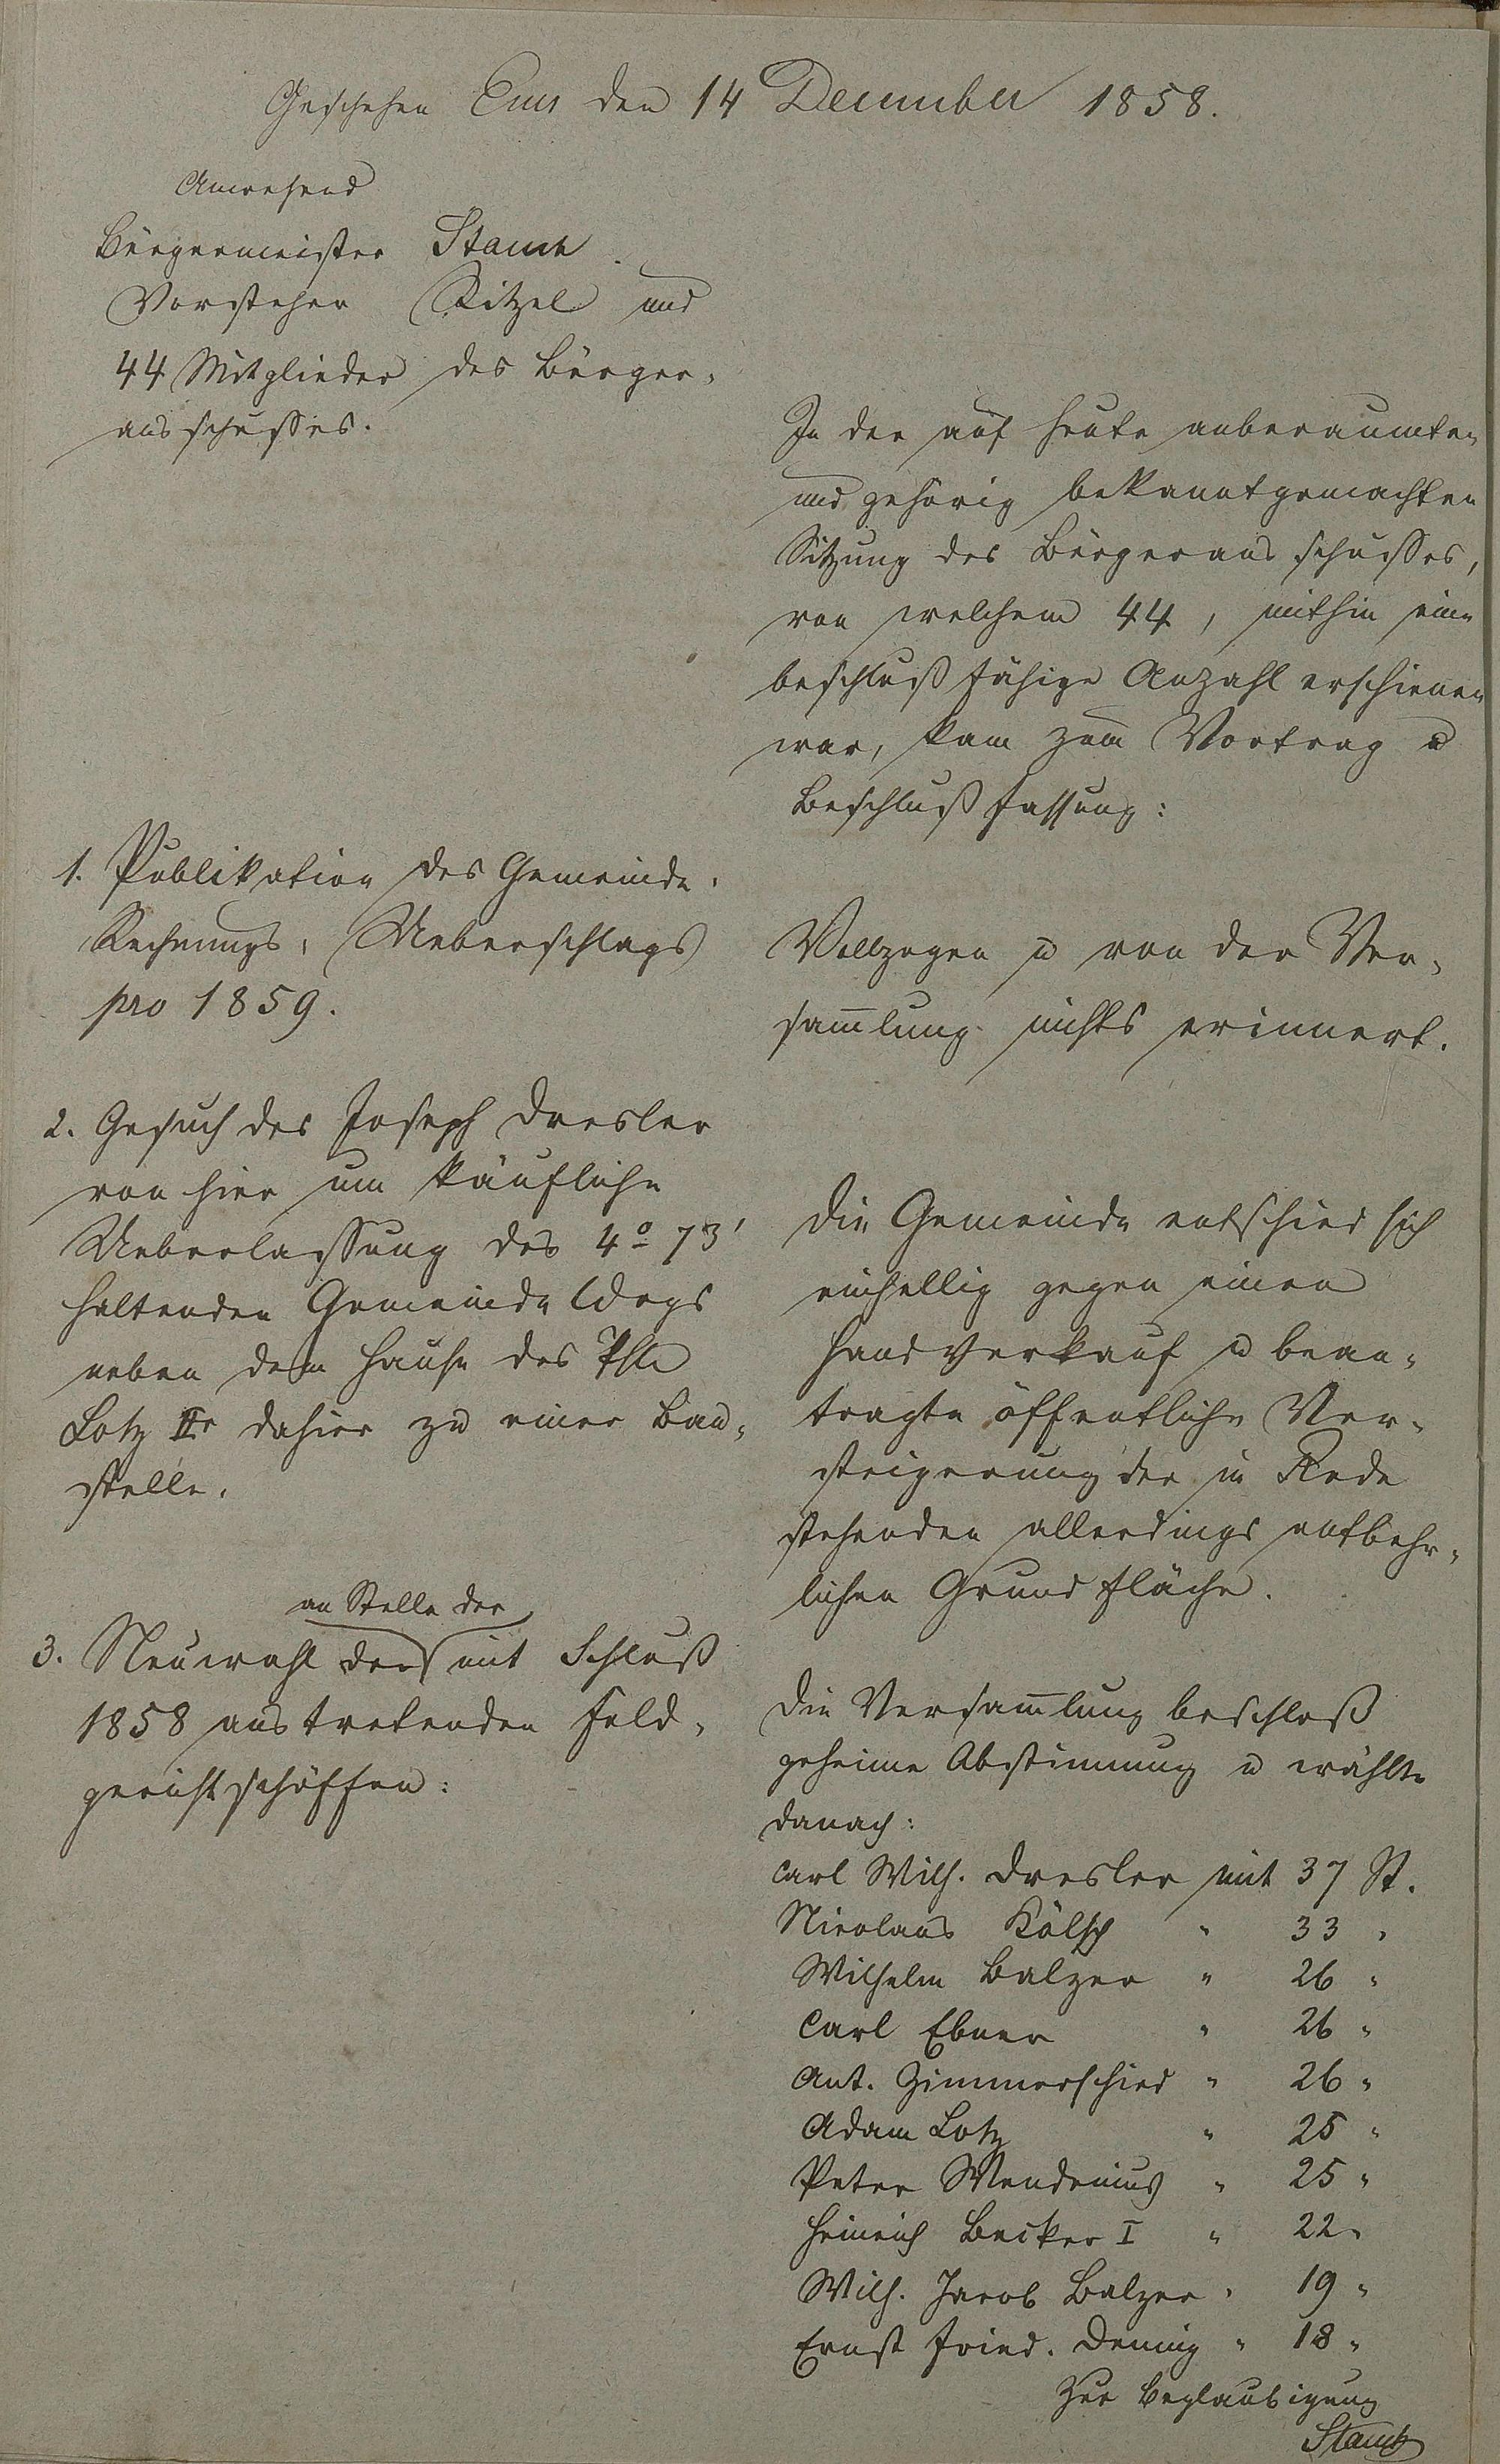 Geschehen Ems den 14 December 1858.
Anwesend
Bürgermeister Stauch.
Vorsteher Kitzel und
44 Mitglieder des Bürger-
ausschusses.
In der auf heute anberaumten
und gehörig bekanntgemachten
Sitzung des Bürgerausschusses,
von welchem 44, mithin eine
beschlußfähige Anzahl erschienen
war, kam zum Vortrag u
Beschlußfassung:
1. Publikation des Gemeinde-
Rechnungs-Ueberschlags
pro 1859.
Vollzogen u von der Ver-
sam̅lung nichts erinnert.
2. Gesuch des Joseph Dresler
von hier um käufliche
Ueberlassung des 4° 73'
haltenden Gemeinde Wegs
neben dem Hause des Phil
Lotz IIr dahier zu einer Bau-
stelle.
Die Gemeinde entschied sich
einhellig gegen einen
Handverkauf u bean-
tragte öffentliche Ver-
steigerung der in Rede
stehenden allerdings entbehr-
lichen Grundfläche.
an Stelle der
3. Neuwahl der mit Schluß
1858 austretenden Feld-
gerichtschöffen:
Die Versam̅lung beschloß
geheime Abstimmung u wählte
danach:
Carl Wilh. Dresler mit 37 St.
Nicolaus Kölsch " 33 "
Wilhelm Balzer " 26 "
Carl Ebner " 26 "
Ant. Zimmerschied " 26 "
Adam Lotz " 25 "
Peter Wendenius " 25 "
Heinrich Becker I " 22 "
Wilh. Jacob Balzer " 19 "
Ernst Fried. Deninig " 18 "
Zur Beglaubigung
Stauch